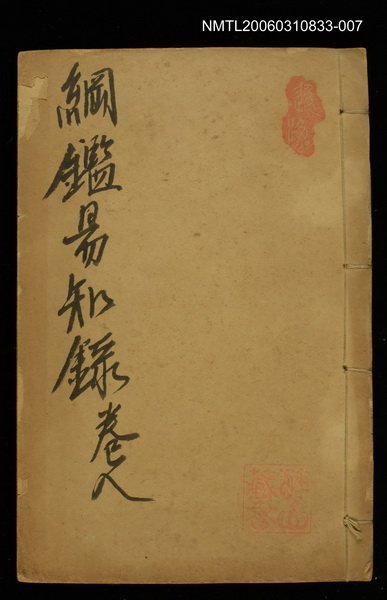 NMTL20060310833-007
綱鑑易知錄卷八